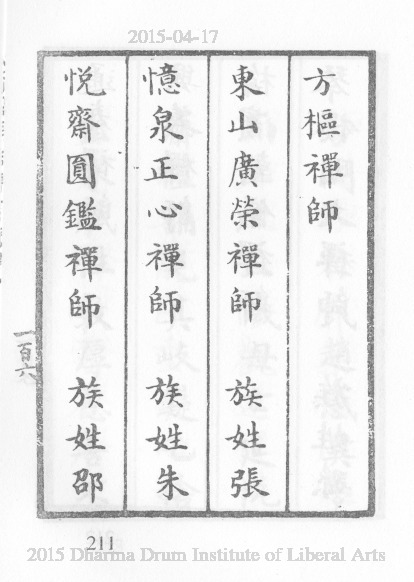 2015-04-17
方樞禪師
東山廣榮禪師 族姓張
憶泉正心禪師 族姓朱
悦齋圓鑑禪師 族姓邵
一百六
211
2015 Dharma Drum Institute of Liberal Arts